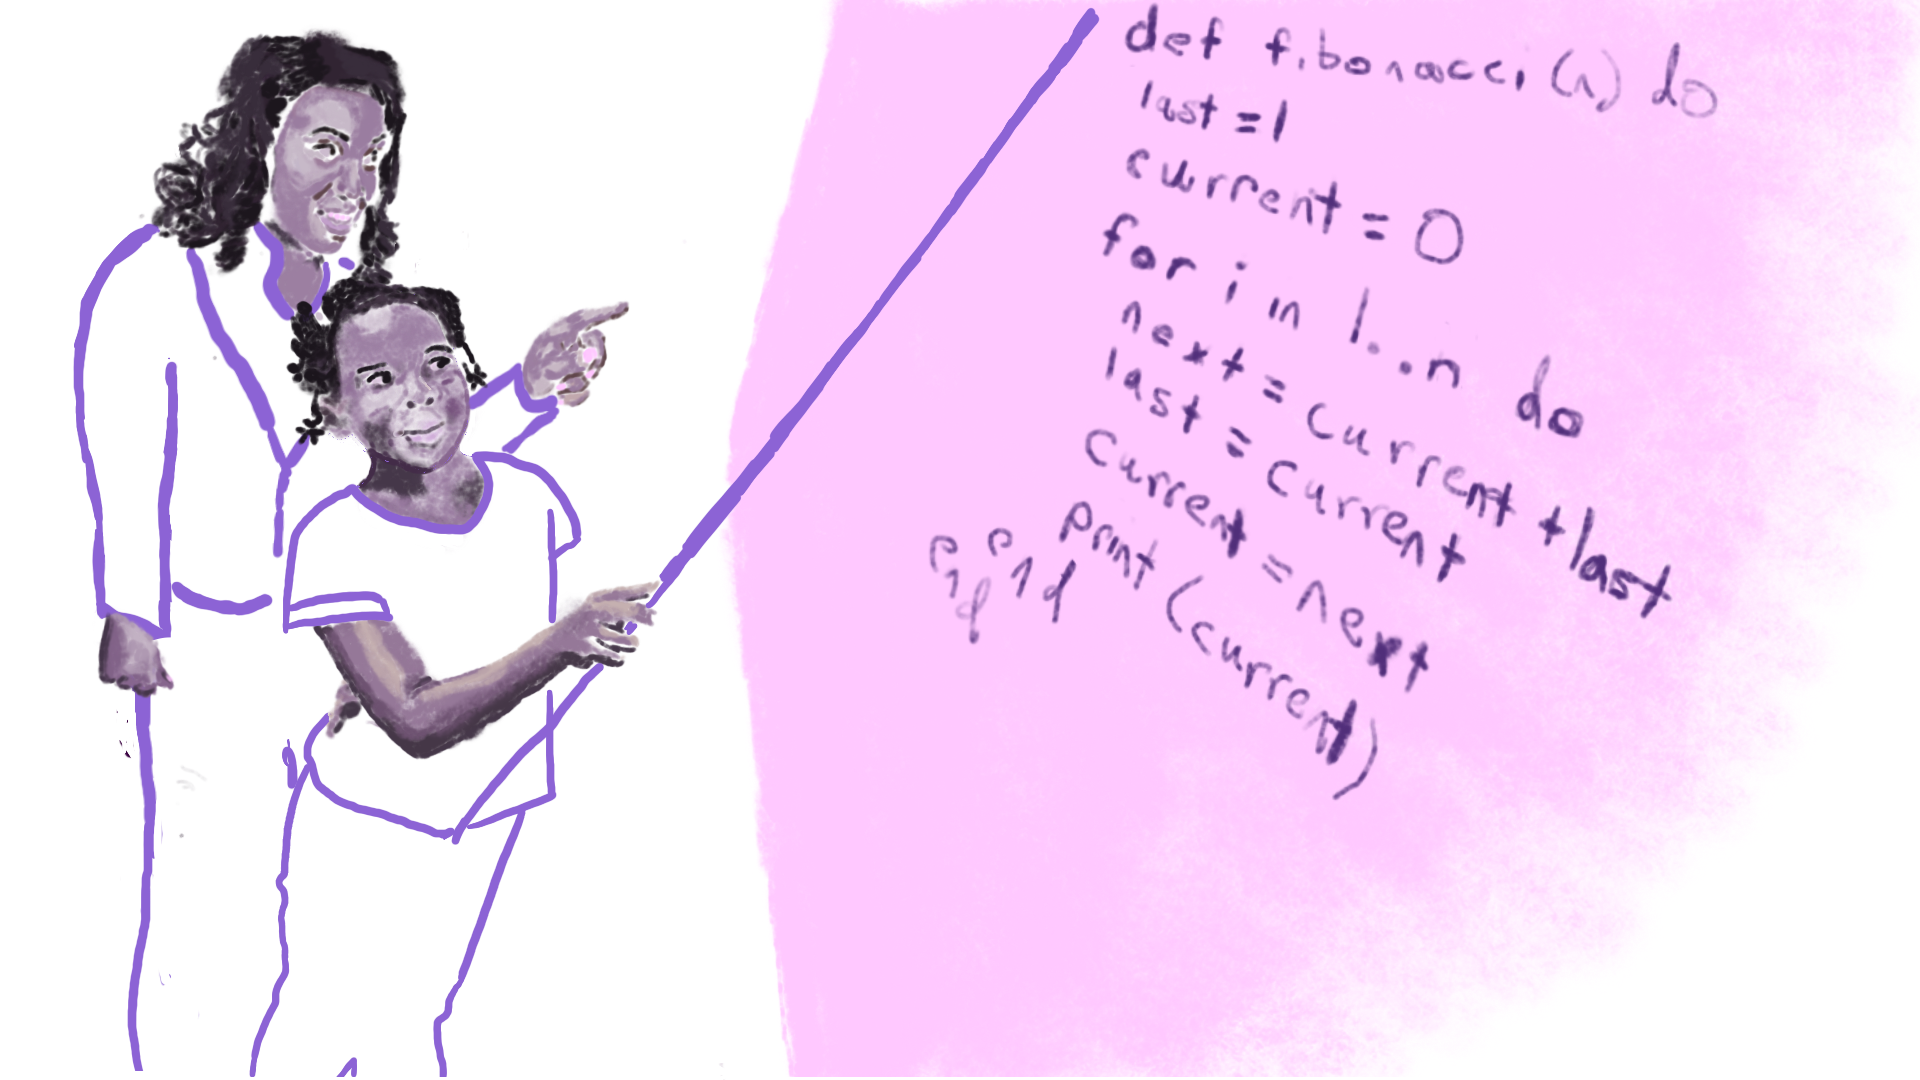 def fibonacci(n) do
last = 1
current = 0
for i in 1...n do
next = current + last
last = current
current = next
print(current)
end
end